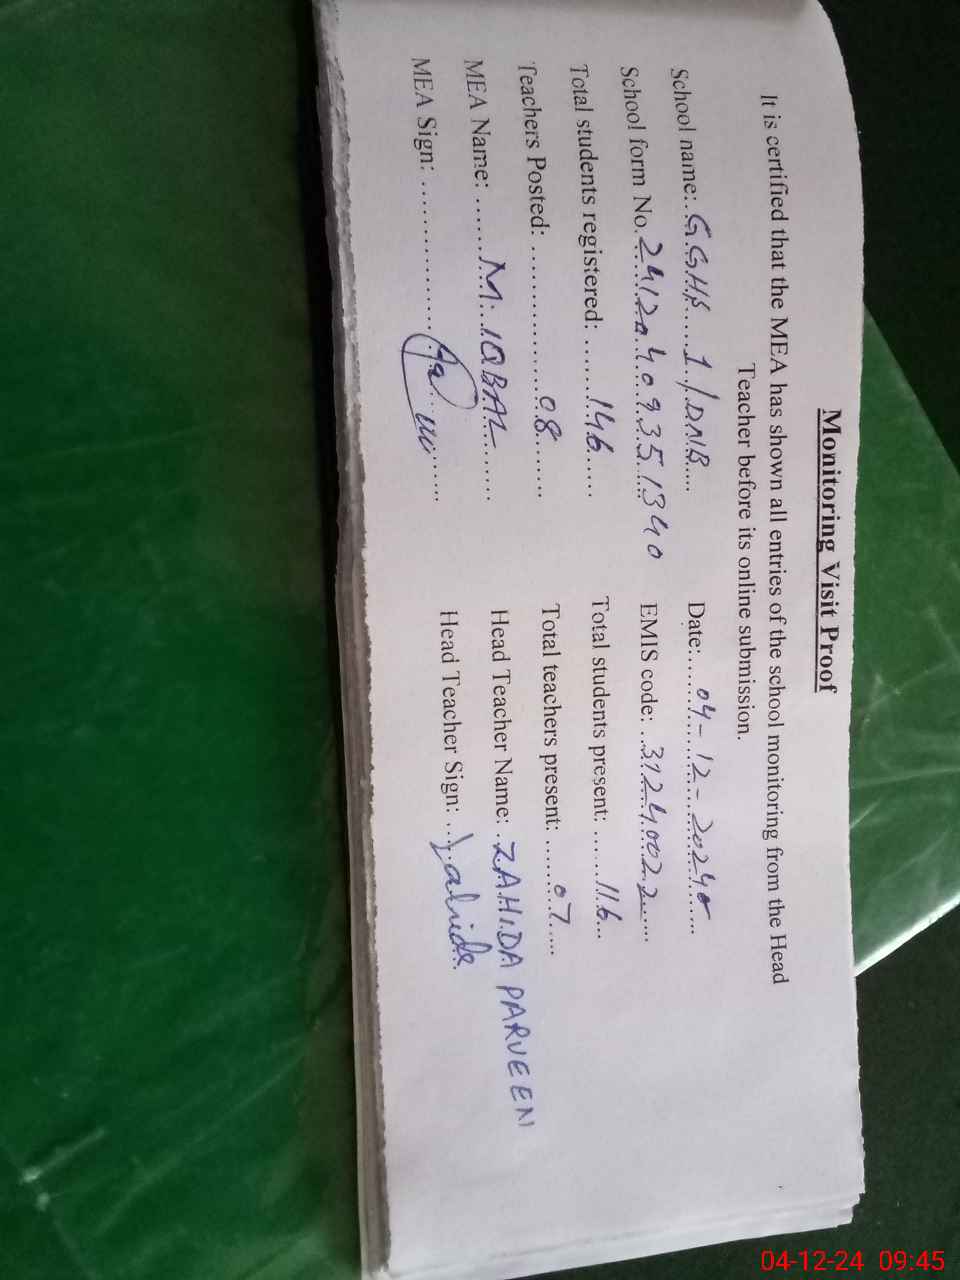 Monitoring Visit Proof
It is certified that the MEA has shown all entries of the school monitoring from the Head
Teacher before its online submission.
School name: GGHS 1/DNB Date: 04-12-2024
School form No. 24120409351340 EMIS code: 31240022
Total students registered: 146 Total students present: 116
Teachers Posted: 08 Total teachers present: 07
MEA Name: M. IQBAL Head Teacher Name: ZAHIDA PARVEEN
MEA Sign: Head Teacher Sign: Zahida
04-12-24 09:45